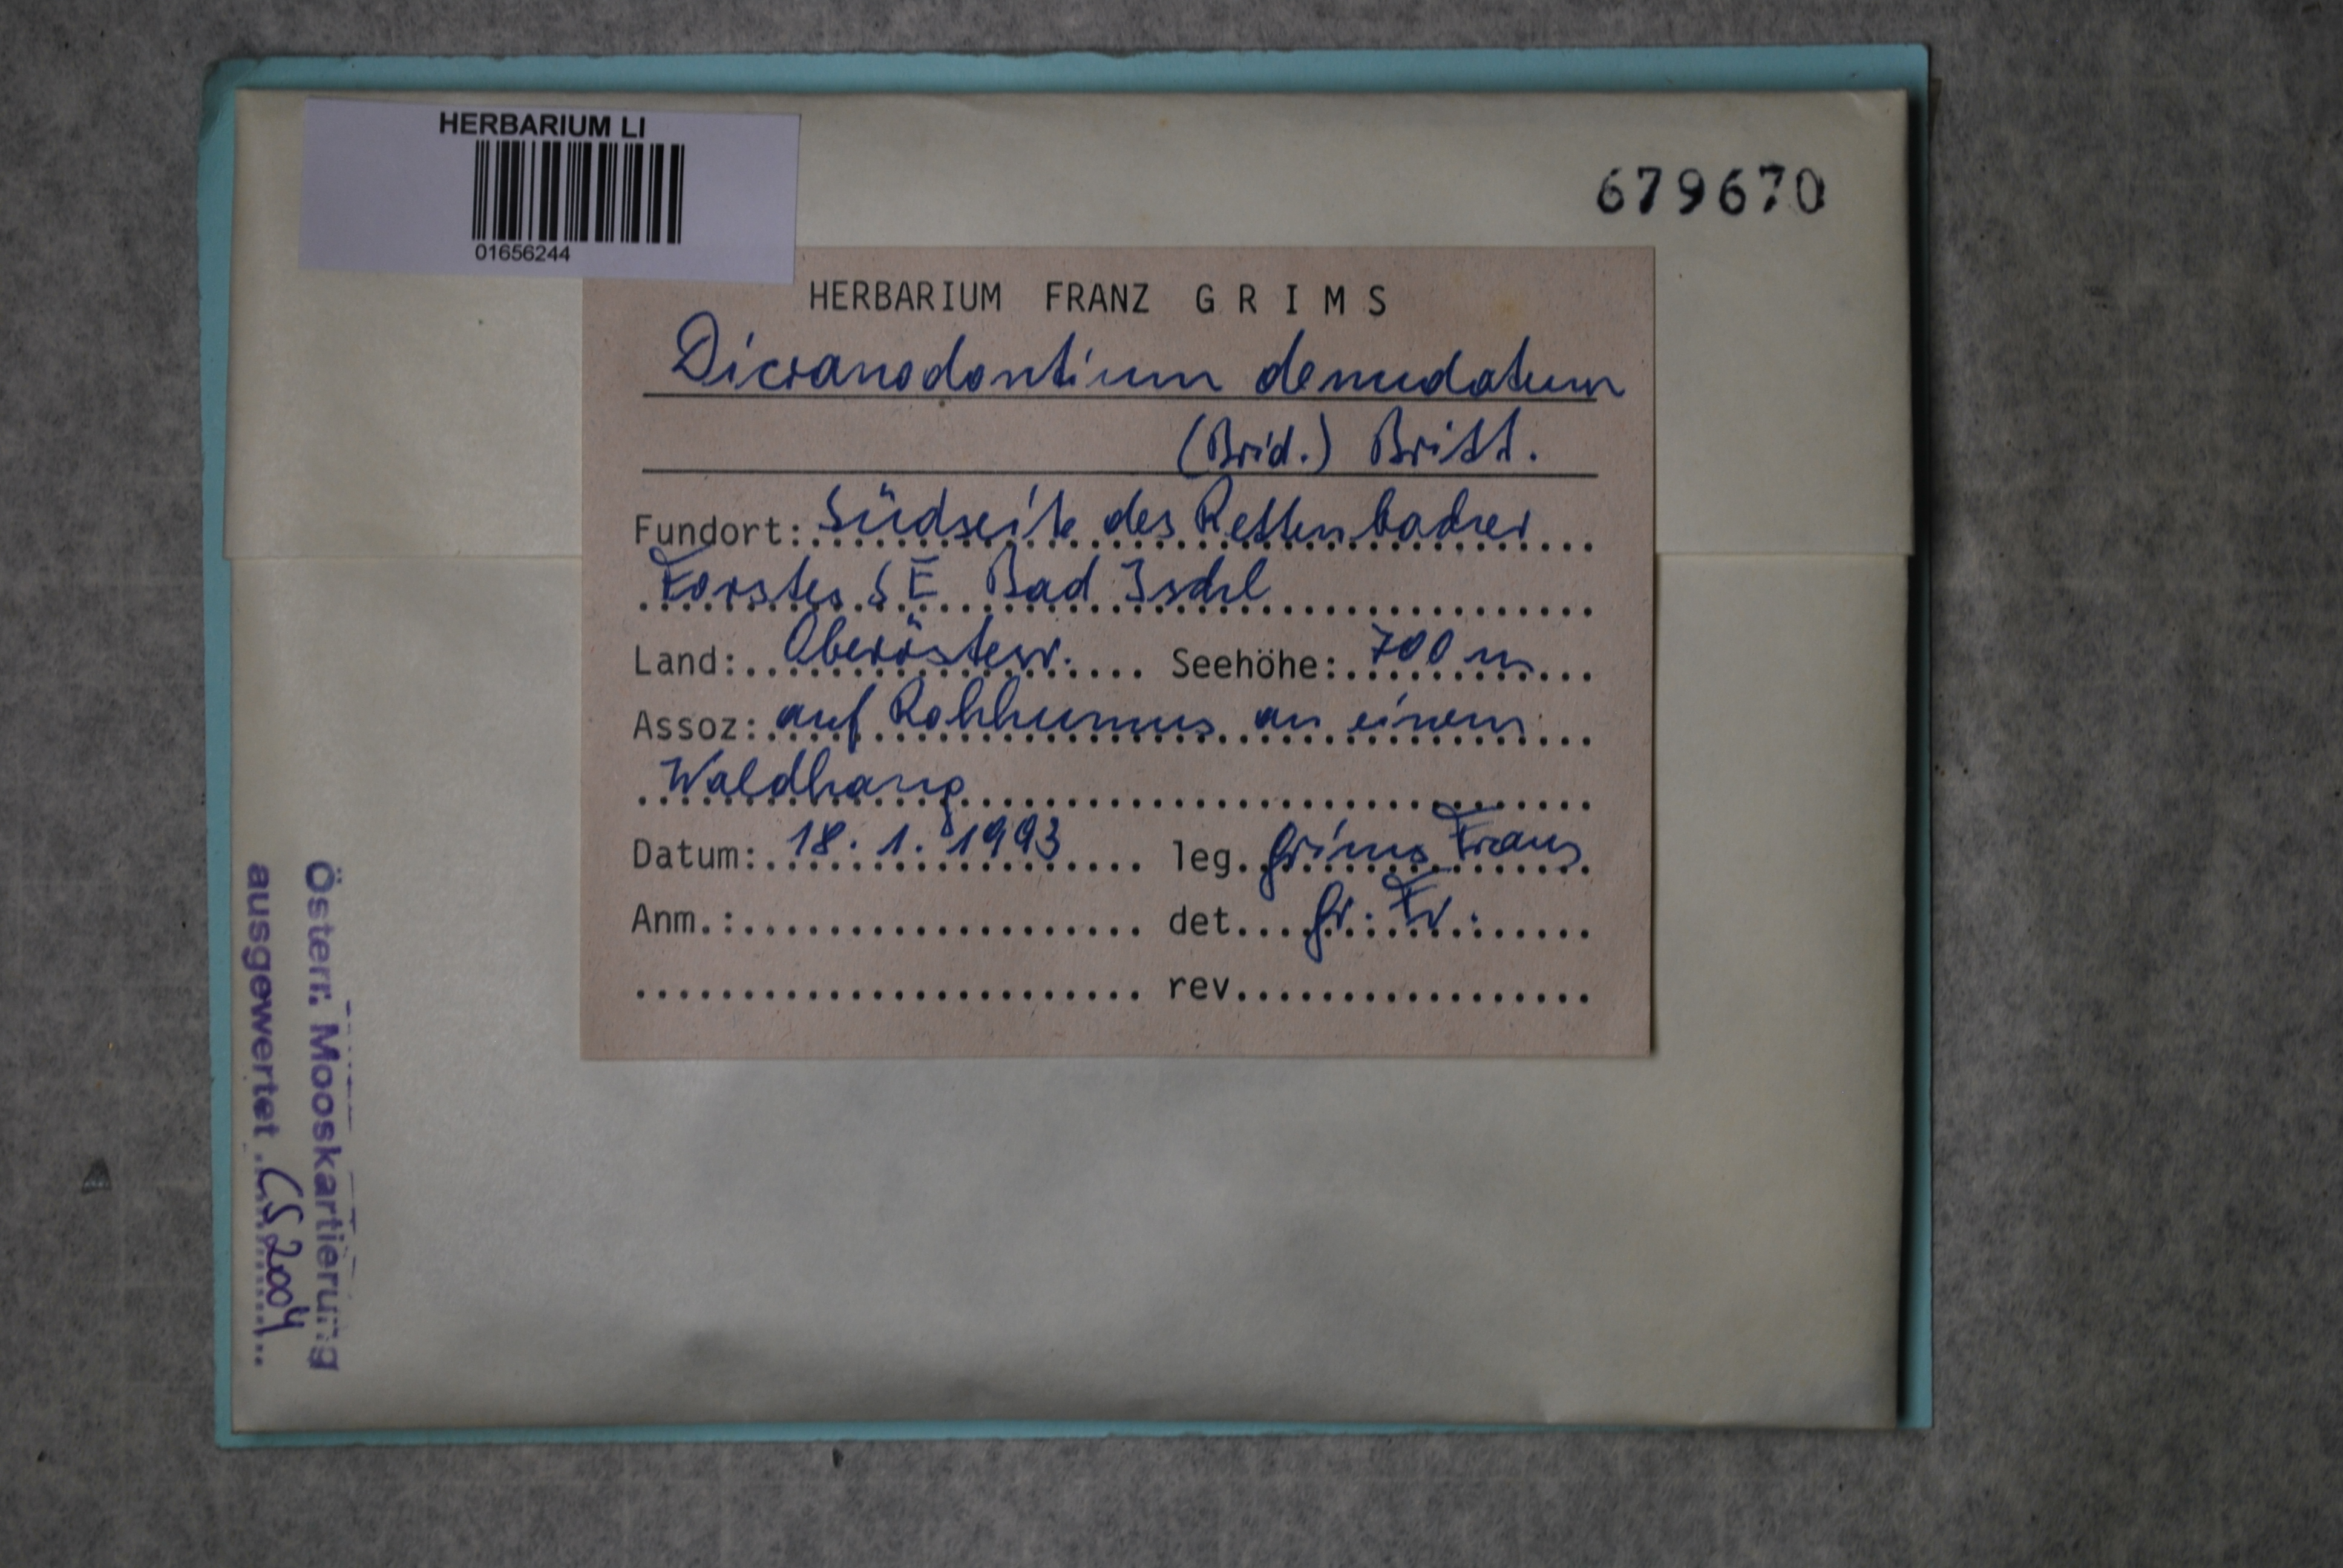 HERBARIUM LI
01656244
679670
HERBARIUM FRANZ GRIMS
Dicranodontium denudatum
(Brid.) Britt.
Fundort: Südseite des Rettenbacher
Forstes SE Bad Ischl
Land: Oberösterr. Seehöhe: 700 m
Assoz: auf Rohhumus an einem
Waldhang
Datum: 18. 1. 1993 leg. Grims Franz
Anm.: det. Gr. Fr.
rev.
Österr. Mooskartierung
ausgewertet CS 2004